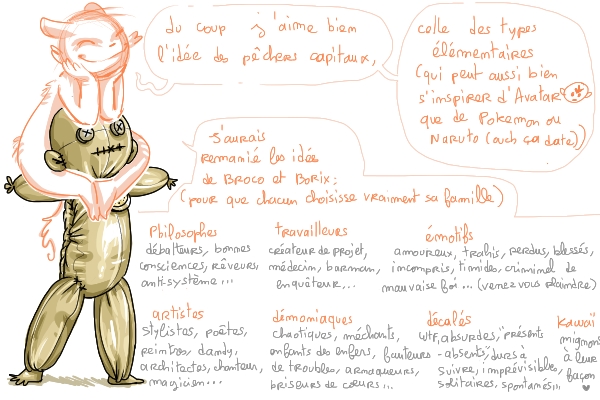 du coup j'aime bien
l'idée des pêchers capitaux,
celle des types
élémentaires
(qui peut aussi bien
s'inspirer d'Avatar
que de Pokemon ou
Naruto (ouch ça date))
J'aurais
remanié les idée
de Broco et Borix:
(pour que chacun choisisse vraiment sa famille)
Philosophes
débatteurs, bonnes
consciences, rêveurs,
anti-système...
travailleurs
créateur de projet,
médecin, barman,
enquêteur,..
émotifs
amoureux, trahis, perdus, blessés,
incompris, timides, criminel de
mauvaise foi ... (venez vous plaindre)
artistes
stylistes, poêtes,
peintres, dandy,
architectes, chanteur,
magicien...
démoniaques
chaotiques, méchants,
enfants des enfers, fauteurs
de troubles, arnaqueurs,
briseurs de coeurs...
décalés
wtf, absurdes, "présents
- absents", durs à
suivre, imprévisibles,
solitaires, spontanés...
Kawaï
mignons
à leur
façon